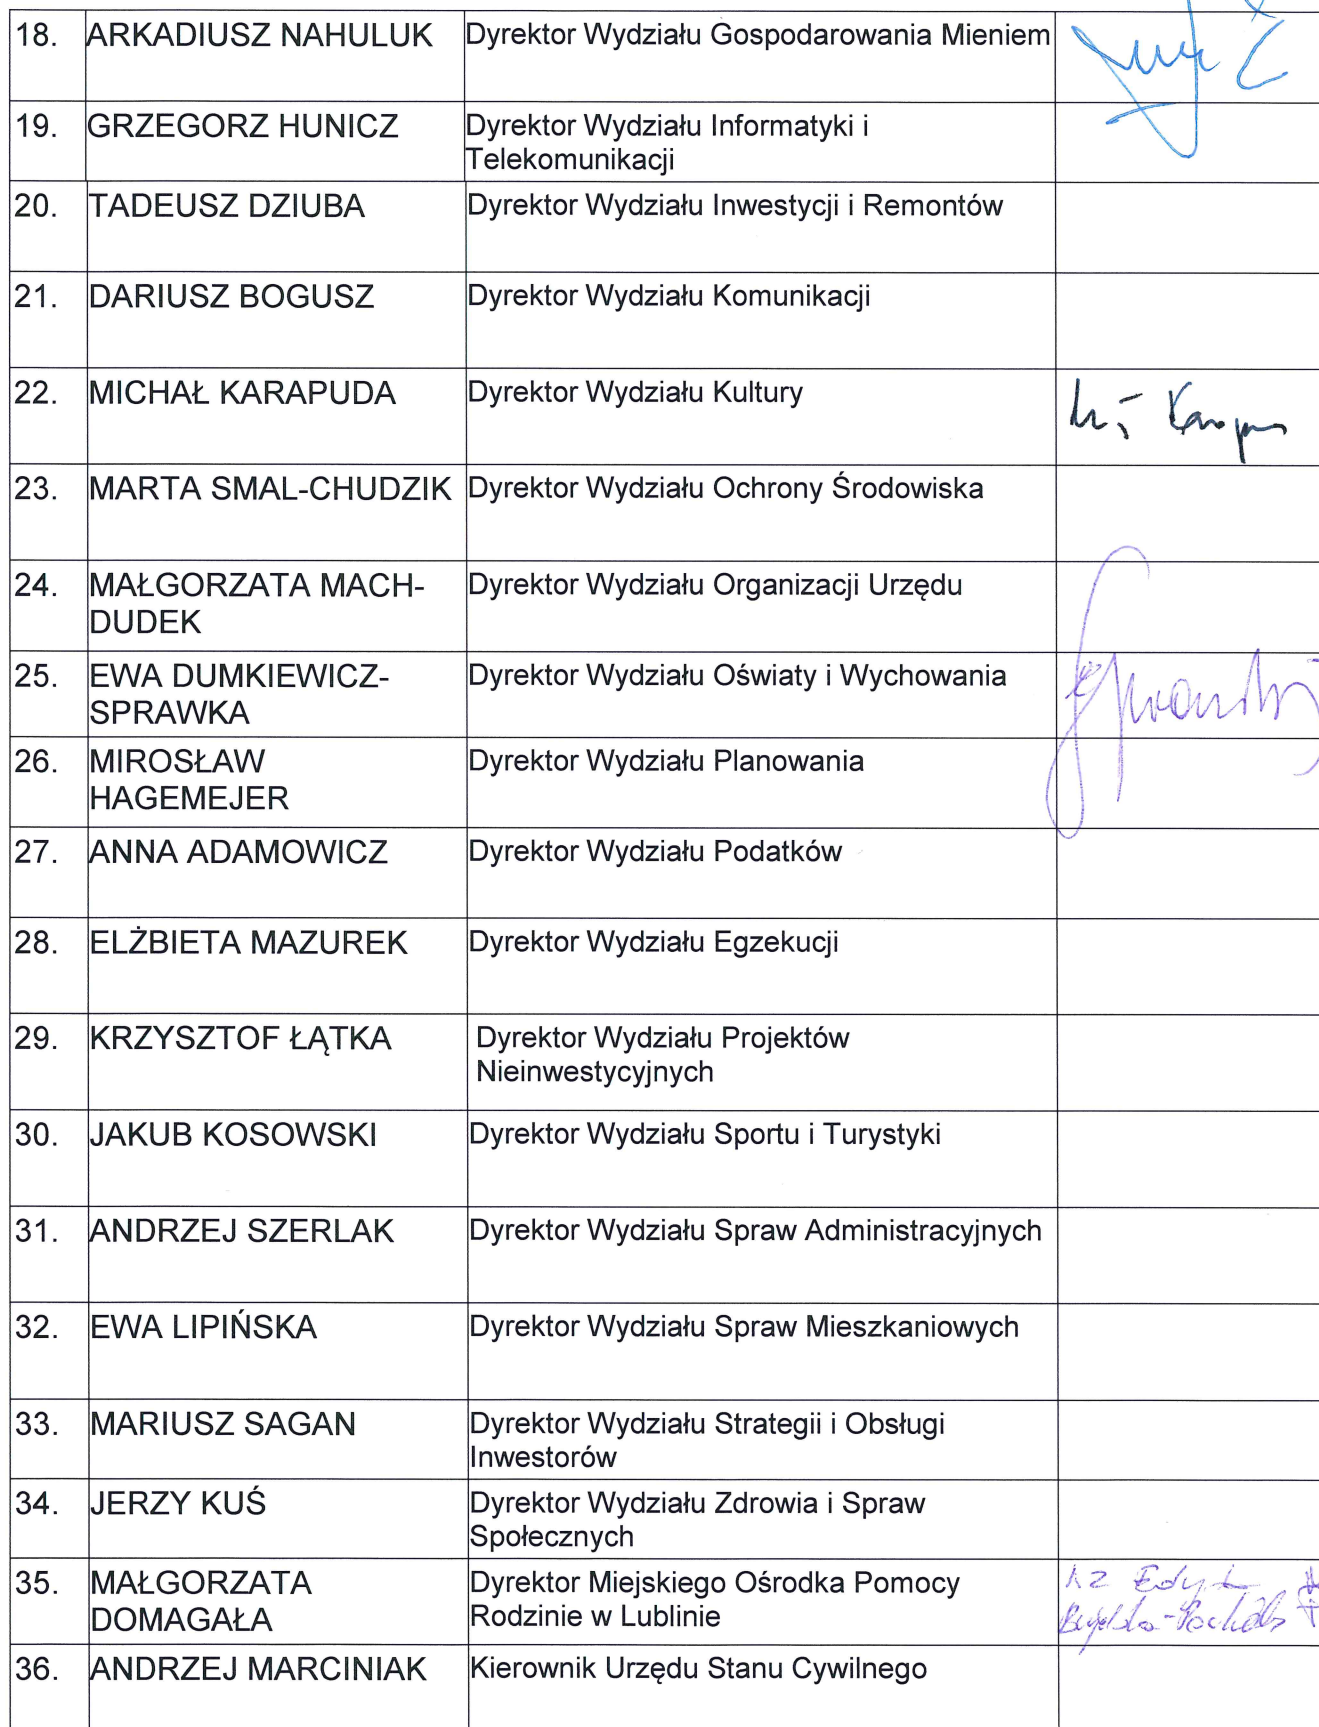 18. ARKADIUSZ NAHULUK Dyrektor Wydziału Gospodarowania Mieniem
19. GRZEGORZ HUNICZ Dyrektor Wydziału Informatyki i
Telekomunikacji
20. TADEUSZ DZIUBA Dyrektor Wydziału Inwestycji i Remontów
21. DARIUSZ BOGUSZ Dyrektor Wydziału Komunikacji
22. MICHAŁ KARAPUDA Dyrektor Wydziału Kultury
23. MARTA SMAL-CHUDZIK Dyrektor Wydziału Ochrony Środowiska
24. MAŁGORZATA MACH- Dyrektor Wydziału Organizacji Urzędu
DUDEK
25. EWA DUMKIEWICZ- Dyrektor Wydziału Oświaty i Wychowania
SPRAWKA
26. MIROSŁAW Dyrektor Wydziału Planowania
HAGEMEJER
27. ANNA ADAMOWICZ Dyrektor Wydziału Podatków
28. ELŻBIETA MAZUREK Dyrektor Wydziału Egzekucji
29. KRZYSZTOF ŁĄTKA Dyrektor Wydziału Projektów
Nieinwestycyjnych
30. JAKUB KOSOWSKI Dyrektor Wydziału Sportu i Turystyki
31. ANDRZEJ SZERLAK Dyrektor Wydziału Spraw Administracyjnych
32. EWA LIPIŃSKA Dyrektor Wydziału Spraw Mieszkaniowych
33. MARIUSZ SAGAN Dyrektor Wydziału Strategii i Obsługi
Inwestorów
34. JERZY KUŚ Dyrektor Wydziału Zdrowia i Spraw
Społecznych
35. MAŁGORZATA Dyrektor Miejskiego Ośrodka Pomocy
DOMAGAŁA Rodzinie w Lublinie
36. ANDRZEJ MARCINIAK Kierownik Urzędu Stanu Cywilnego